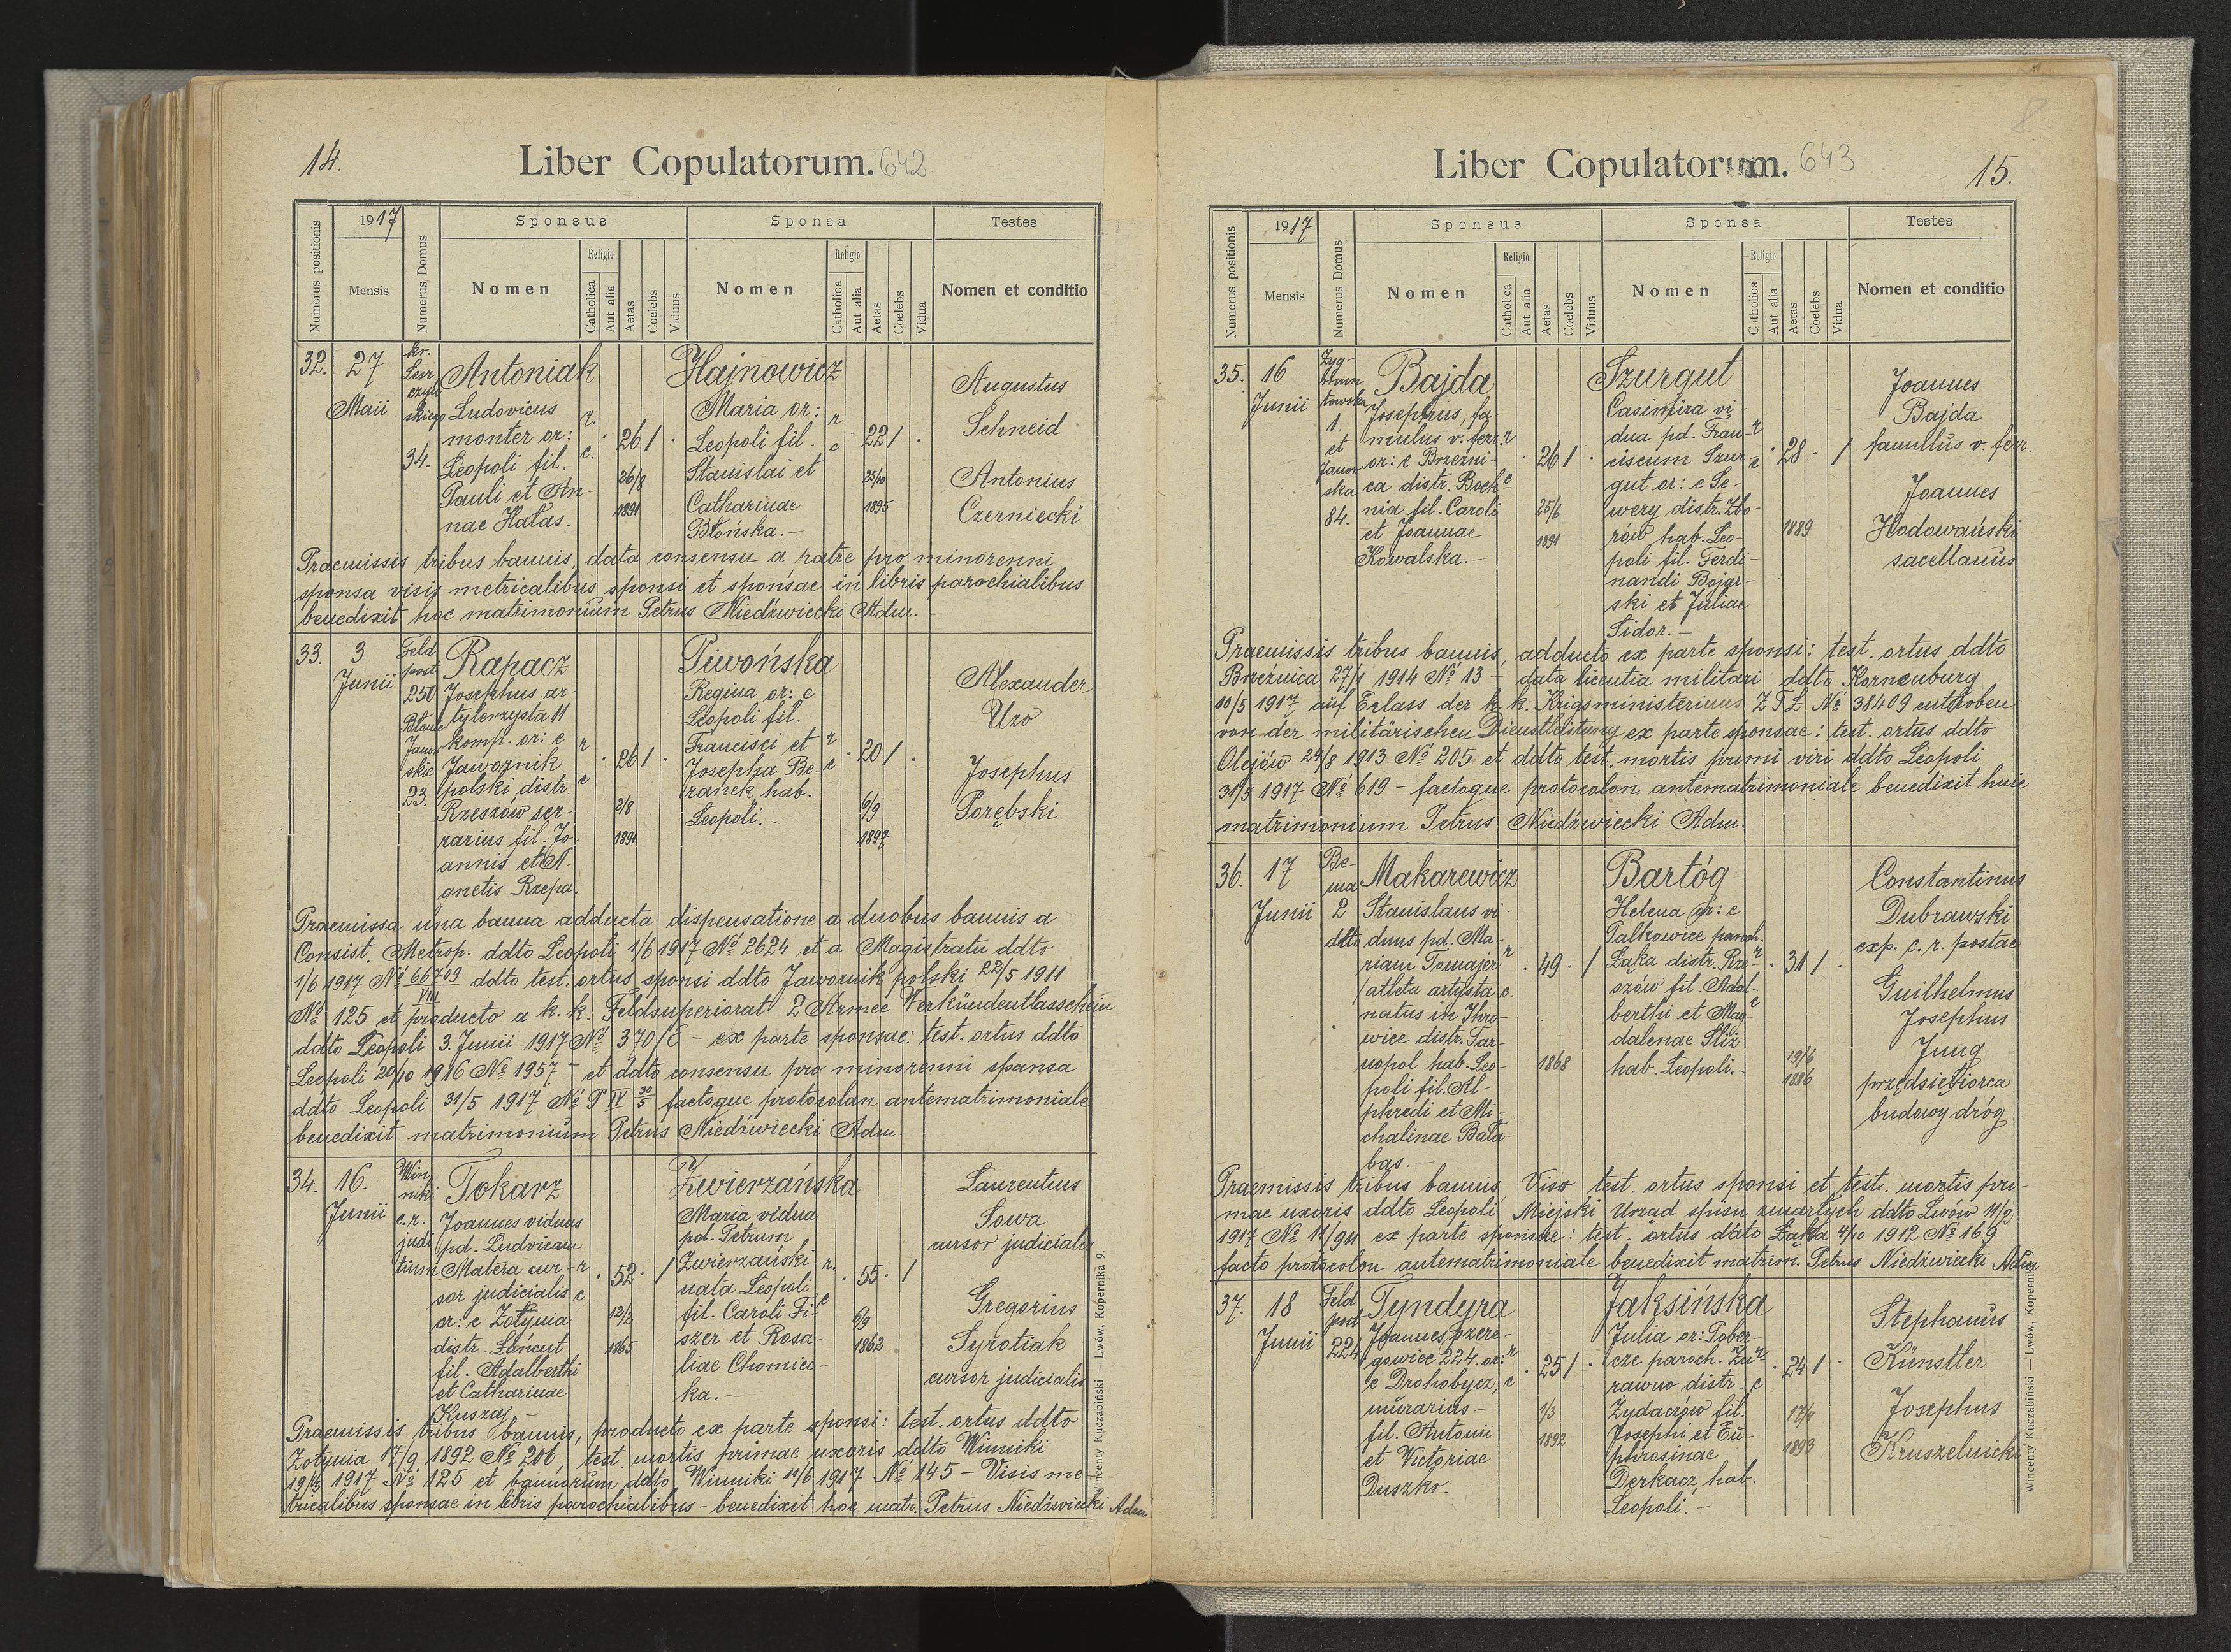 14.
Liber Copulatorum. 642
Numerus positionis
1917
Mensis
Numerus Domus
Sponsus
Nomen
Religio
Catholica
Aut alia
Aetas
Coelebs
Viduus
Sponsa
Nomen
Religio
Catholica
Aut alia
Aetas
Coelebs
Vidua
Testes
Nomen et conditio
32.
27
Maii
34.
Antoniak
Ludovicus
monter or:
Leopoli fil.
Pauli et An-
nae Hałas.
r.
c.
26 1
26/8
1891
Hajnowicz
Maria or:
Leopoli fil.
Stanislai et
Catharinae
Błońska.-
r
c
22 1
25/10
1895
Augustus
Schneid
Antonius
Czerniecki
Praemissis tribus bannis, data consensu a patre pro minorenni
sponsa visis metricalibus sponsi et sponsae in libris parochialibus
benedixit hoc matrimonium Petrus Niedźwiecki Adm.
33.
3
Junii
Feld
post
250
Błonie
Janow
skie
23.
Rapacz
Josephus ar-
tylerzysta 11
komp. or: e
Jawornik
polski distr.
Rzeszów ser-
rarius fil. Jo-
annis et A-
gnetis Rzepa.
r
c
26 1
2/8
1891
Piwońska
Regina or: e
Leopoli fil.
Francisci et
Josepha Be-
ranek hab.
Leopoli.-
r
c
20 1
6/9
1897
Alexander
Uzo
Josephus
Porębski
Praemissa una banna adducta dispensatione a duobus bannis a
Consist. Metrop. ddto Leopoli 1/6 1917 № 2624 et a Magistratu ddto
1/6 1917 № 66709/VIII ddto test. ortus sponsi ddto Jawornik polski 22/5 1911
№ 125 et producto a k. k. Feldsuperiorat 2 Armee Verkündentlasschein
ddto Leopoli 3. Junii 1917 № 370/E - ex parte sponsae: test. ortus ddto
Leopoli 20/10 1916 № 1957 - et ddto consensu pro minorenni sponsa
ddto Leopoli 31/5 1917 № P IV 30/5 factoque protocolan antematrimoniale
benedixit matrimonium Petrus Niedźwiecki Adm.
34.
16.
Junii
Win
niki
c. r.
judi
tium
Tokarz
Joannes viduus
pd. Ludvicam
Matera cur-
sor judicialis
or: e Zołynia
distr. Łańcut
fil. Adalberthi
et Catharinae
Kuszaj -
r
c
52. 1
12/2
1865
Zwierzańska
Maria vidua
pd. Petrum
Zwierzański
nata Leopoli
fil. Caroli Fi-
szer et Rosa-
liae Chomiec-
ka.-
r.
c
55. 1
6/9
1862
Laurentius
Sowa
cursor judicialis
Gregorius
Syrotiak
cursor judicialis
Praemissis tribus bannis, producto ex parte sponsi: test. ortus ddto
Zołynia 17/9 1892 № 206, test. mortis primae uxoris ddto Winniki
1917 № 125 et bannorum ddto Winniki 1917 № 145 - Visis me
tricalibus sponsae in libris parochialibus - benedixit hoc matr. Petrus Niedźwiecki Adm
Wincenty Kuczabiński — Lwów, Kopernika 9.
8
Liber Copulatorum. 643
15.
Numerus positionis
1917
Mensis
Numerus Domus
Sponsus
Nomen
Religio
Catholica
Aut alia
Aetas
Coelebs
Viduus
Sponsa
Nomen
Religio
Catholica
Aut alia
Aetas
Coelebs
Vidua
Testes
Nomen et conditio
35.
16
Junii
Zyg-
mun
towska
1.
et
Janow
ska
84.
Bajda
Josephus, fa-
mulus v. ferr.
or: e Brzeźni-
ca distr. Boch-
nia fil. Caroli
et Joannae
Kowalska.-
r
c
26 1
1891
Szurgut
Casimira vi-
dua pd. Fran-
ciscum Szur-
gut or: e Se-
wery distr. Zbo-
rów hab. Leo-
poli fil. Ferdi-
nandi Bojar-
ski et Juliae
Sidor.-
r
c
28. 1
1889
Joannes
Bajda
famullus v. ferr.
Joannes
Hodowański
sacellanus
Praemissis tribus bannis, adducto ex parte sponsi: test. ortus ddto
Brzeźnica 27/1 1914 № 13 - data licentia militari ddto Korneuburg
10/5 1917, auf Erlass der k. k. Krigsministeriums Z F Z № 38409 enthoben
von der militärischen Dienstleistung ex parte sponsae: test. ortus ddto
Olejów 24/8 1913 № 205 et ddto test. mortis primi viri ddto Leopoli
31/5 1917 № 619 - factoque protocolon antematrimoniale benedixit huic
matrimonium Petrus Niedźwiecki Adm.
36.
17
Junii
Be-
ma
2
ddto
Makarewicz
Stanislaus vi-
duus pd. Ma-
riam Tomajer
/atleta artysta
natus in Ihro-
wice distr. Tar-
nopol hab. Leo-
poli fil. Al-
phredi et Mi-
chalinae Bała-
bas.-
r
c.
49. 1
1868
Bartóg
Helena or: e
Palkowice paroch.
Łąka distr. Rze-
szów fil. Adal-
berthi et Mag-
dalenae Stiż
hab. Leopoli.-
r
c
31 1
19/6
1886
Constantinus
Dubrawski
exp. c. r. postae
Guilhelmus
Josephus
Jung
przedsiębiorca
budowy dróg
Praemissis tribus bannis Viso test. ortus sponsi et test. mortis pri-
mae uxoris ddto Leopoli Miejski Urzad spisu zmarłych ddto Lwów 11/2
1917 № 11/911 ex parte sponsae: test. ortus ddto Łąka 4/10 1912 № 169
facto protocolon antematrimoniale benedixit matrim. Petrus Niedźwiecki Adm
37.
18
Junii
Feld
post
224
Tyndyra
Joannes szere-
gowiec 224. or:
e Drohobycz,
murarius-
fil. Antonii
et Victoriae
Duszko.-
r
c
25 1
1/3
1892
Jaksińska
Julia or: Pober-
cze paroch. Żu-
rawno distr.
Żydaczów fil.
Josephi et Eu-
phrosinae
Derkacz, hab.
Leopoli.-
r
c
24 1
1893
Stephanus
Künstler
Josephus
Kruszelnicki
Wincenty Kuczabiński — Lwów, Kopernika 9.